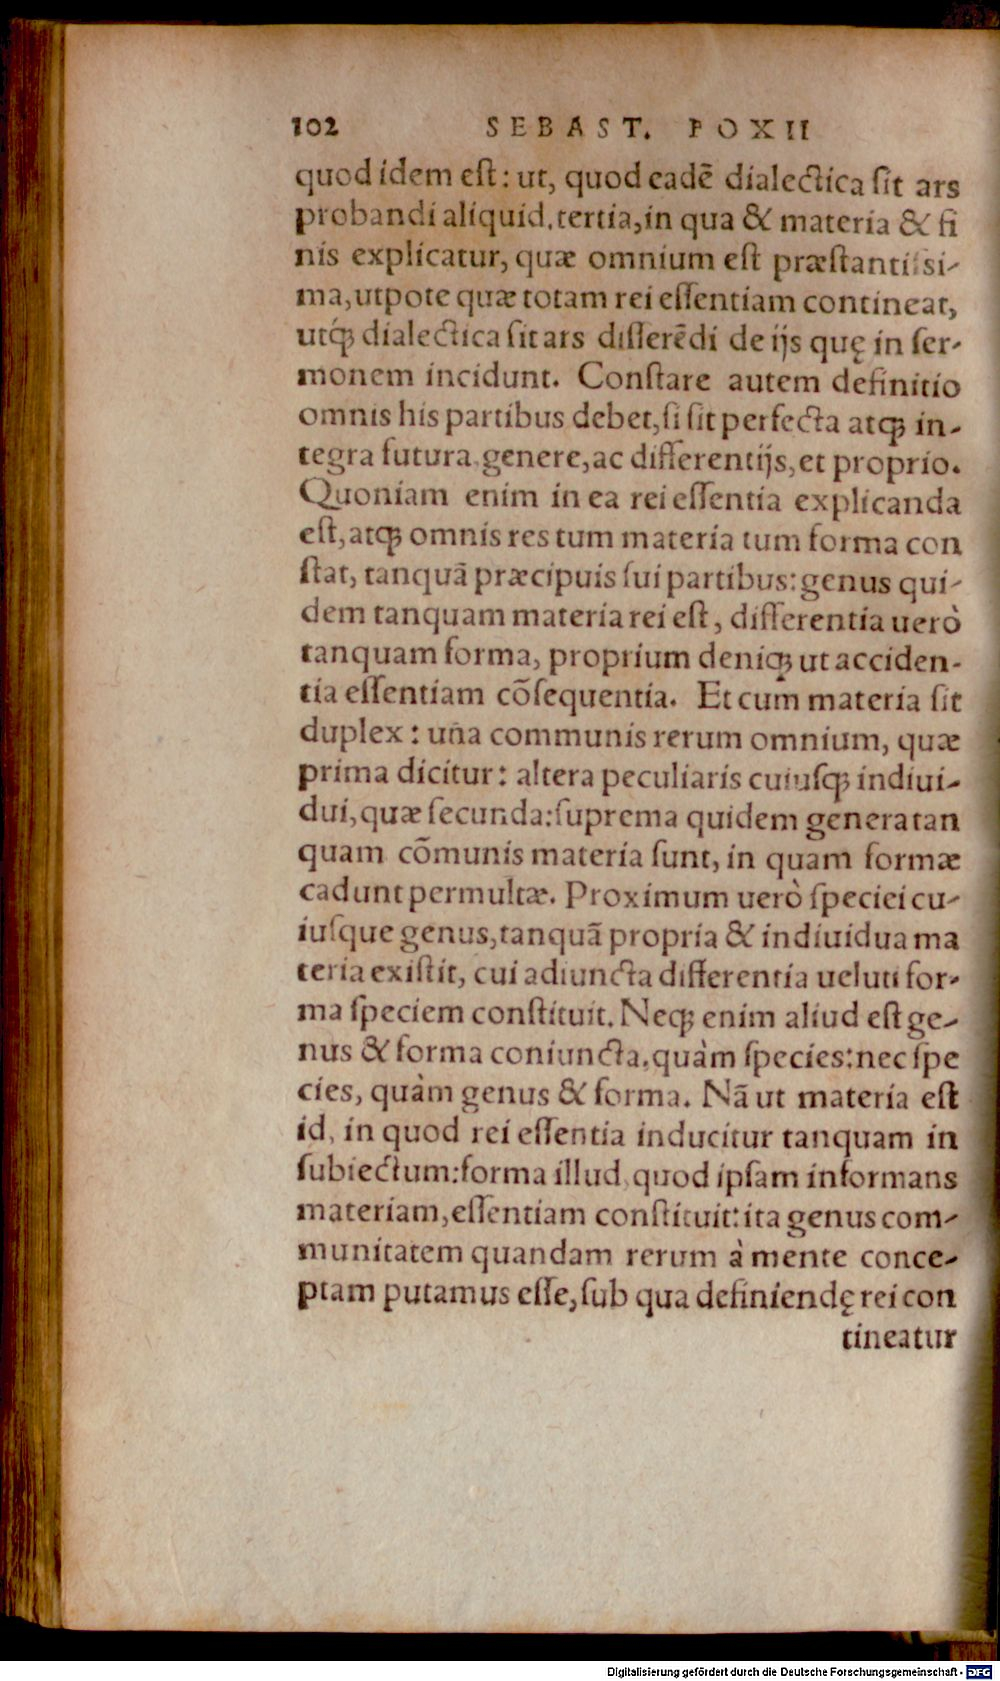 102 SEBAST. FOXII
quod idem eſt: ut, quod eadē dialectica ſit ars
probandi aliquid. tertia, in qua & materia & fi
nis explicatur, quæ omnium eſt præſtantiſsi-
ma, utpote quæ totam rei eſſentiam contineat,
utq́ꝫ dialectica ſit ars diſſerēdi de ijs quę in ſer-
monem incidunt. Conſtare autem definitio
omnis his partibus debet, ſi ſit perfecta atqꝫ in-
tegra futura, genere, ac differentijs, et proprio.
Quoniam enim in ea rei eſſentia explicanda
eſt, atqꝫ omnis res tum materia tum forma con
ſtat, tanquā præcipuis ſui partibus: genus qui-
dem tanquam materia rei eſt, differentia uerò
tanquam forma, proprium deniqꝫ ut acciden-
tia eſſentiam cōſequentia. Et cum materia ſit
duplex: una communis rerum omnium, quæ
prima dicitur: altera peculiaris cuiuſqꝫ indiui-
dui, quæ ſecunda: ſuprema quidem genera tan
quam cōmunis materia ſunt, in quam formæ
cadunt permultæ. Proximum uerò ſpeciei cu-
iuſque genus, tanquā propria & indiuidua ma
teria exiſtit, cui adiuncta differentia ueluti for-
ma ſpeciem conſtituit. Neqꝫ enim aliud eſt ge-
nus & forma coniuncta, quàm ſpecies: nec ſpe
cies, quàm genus & forma. Nā ut materia eſt
id, in quod rei eſſentia inducitur tanquam in
ſubiectum: forma illud, quod ipſam informans
materiam, eſſentiam conſtituit: ita genus com-
munitatem quandam rerum à mente conce-
ptam putamus eſſe, ſub qua definiendę rei con
tineatur
Digitalisierung gefördert durch die Deutsche Forschungsgemeinschaft - DFG